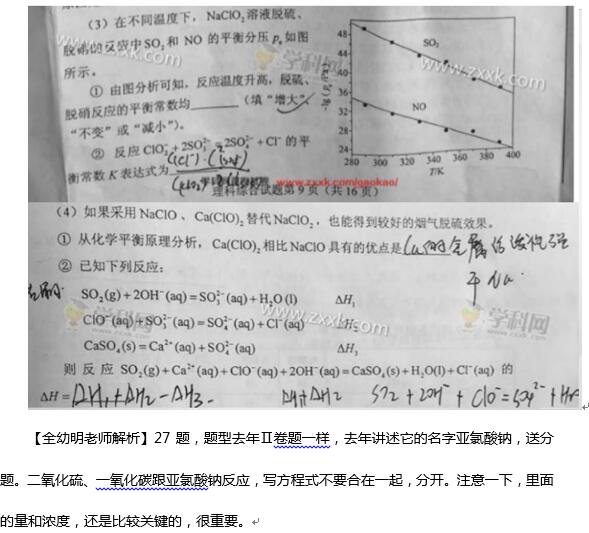 (3)在不同温度下,NaClO₂溶液脱硫、
脱硝的反应中SO₂和 NO 的平衡分压 pₑ如图
所示。
① 由图分析可知,反应温度升高,脱硫、
脱硝反应的平衡常数均______(填“增大”、
“不变”或“减小”)。
② 反应 ClO₂⁻+2SO₃²⁻=2SO₄²⁻+Cl⁻ 的平
衡常数 K 表达式为
48
44
40
36
32
28
24
SO₂
NO
280 300 320 340 360 380 400
T/K
www.zxxk.com/gaokao/
理科综合试题第 9 页(共 16 页)
(4)如果采用NaClO、Ca(ClO)₂替代NaClO₂,也能得到较好的烟气脱硫效果。
① 从化学平衡原理分析,Ca(ClO)₂相比NaClO具有的优点是
② 已知下列反应:
SO₂(g)+2OH⁻(aq)=SO₃²⁻(aq)+H₂O(l) ΔH₁
ClO⁻(aq)+SO₃²⁻(aq)=SO₄²⁻(aq)+Cl⁻(aq) ΔH₂
CaSO₄(s)=Ca²⁺(aq)+SO₄²⁻(aq) ΔH₃
则反应 SO₂(g)+Ca²⁺(aq)+ClO⁻(aq)+2OH⁻(aq)=CaSO₄(s)+H₂O(l)+Cl⁻(aq) 的
ΔH= ΔH₁+ΔH₂-ΔH₃
学科网
www.zxxk.com
【全幼明老师解析】27 题,题型去年Ⅱ卷题一样,去年讲述它的名字亚氯酸钠,送分
题。二氧化硫、一氧化碳跟亚氯酸钠反应,写方程式不要合在一起,分开。注意一下,里面
的量和浓度,还是比较关键的,很重要。